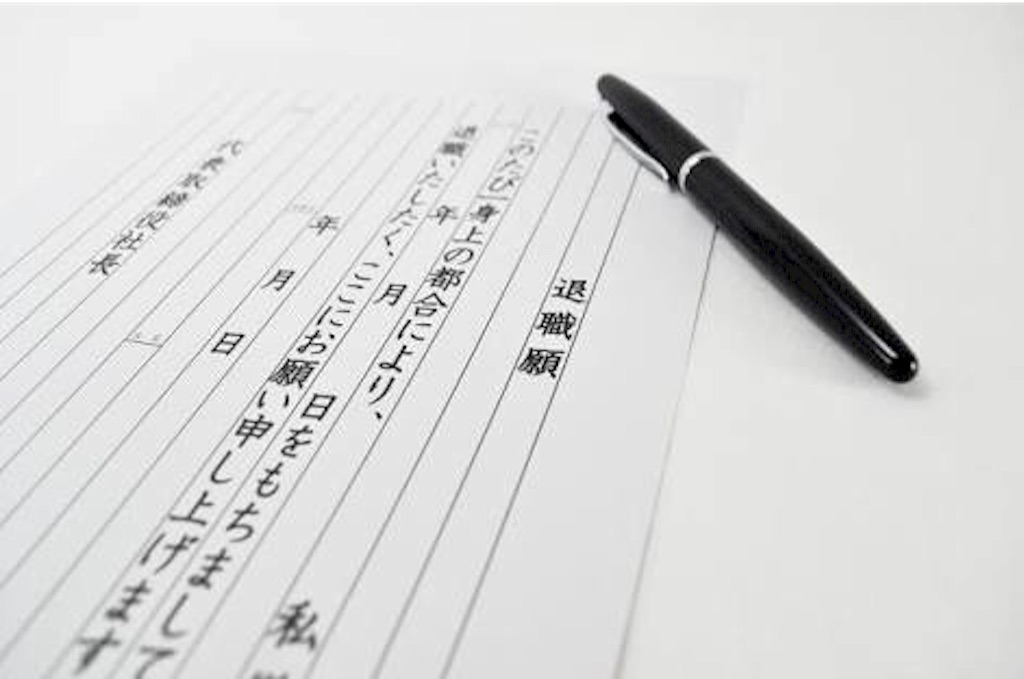 退職願
私
このたび一身上の都合により、
年 月 日をもちまして
退職いたしたく、ここにお願い申し上げます
年 月 日
代表取締役社長